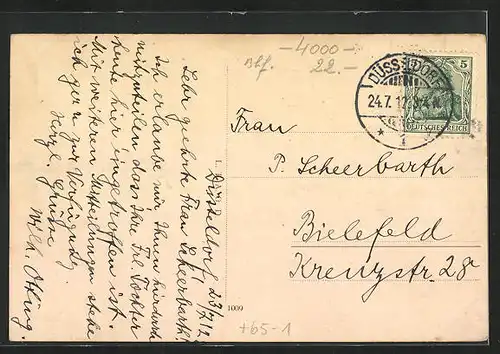 -4000-
Bhf. 22.-
DÜSSELDORF
24.7.12
* 1
5
DEUTSCHES REICH
Frau
P. Scheerbarth
Bielefeld
Kreuzstr. 28a
1.
Düsseldorf 23/7 12
Sehr geehrte Frau Scheerbarth!
Ich erlaube mir Ihnen hierdurch
mitzuteilen dass Ihre Frl. Tochter
heute hier eingetroffen ist.
Mit weiteren Mitteilungen stehe
ich gern zur Verfügung.
Herzl. Grüsse
1009
+65-1